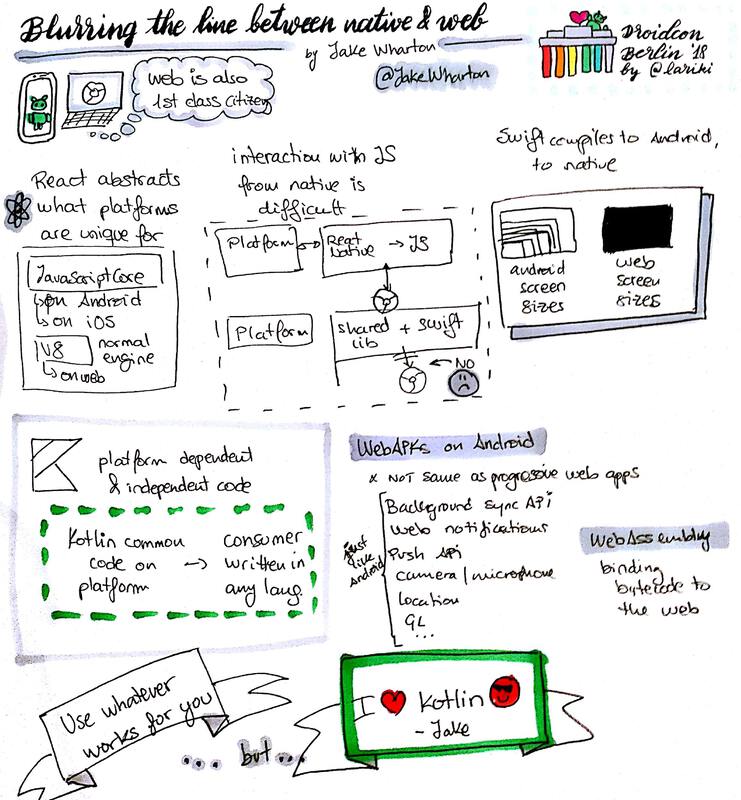 Blurring the line between native & web
by Jake Wharton
@JakeWharton
Droidcon
Berlin '18
by @lariki
web is also
1st class citizen
React abstracts
what platforms
are unique for
JavaScriptCore
on Android
on iOS
V8
normal
engine
on web
interaction with JS
from native is
difficult
Platform
React
Native → JS
Platform
shared + swift
lib
NO
Swift compiles to Android,
to native
android
screen
sizes
web
screen
sizes
platform dependent
& independent code
Kotlin common
code on →
platform
consumer
written in
any lang.
WebAPKs on Android
* NOT same as progressive web apps
just
like
Android
Background sync API
Web notifications
Push API
camera/microphone
location
GL
...
WebAssembly
binding
bytecode to
the web
Use whatever
works for you
... but ...
I ❤ Kotlin
- Jake